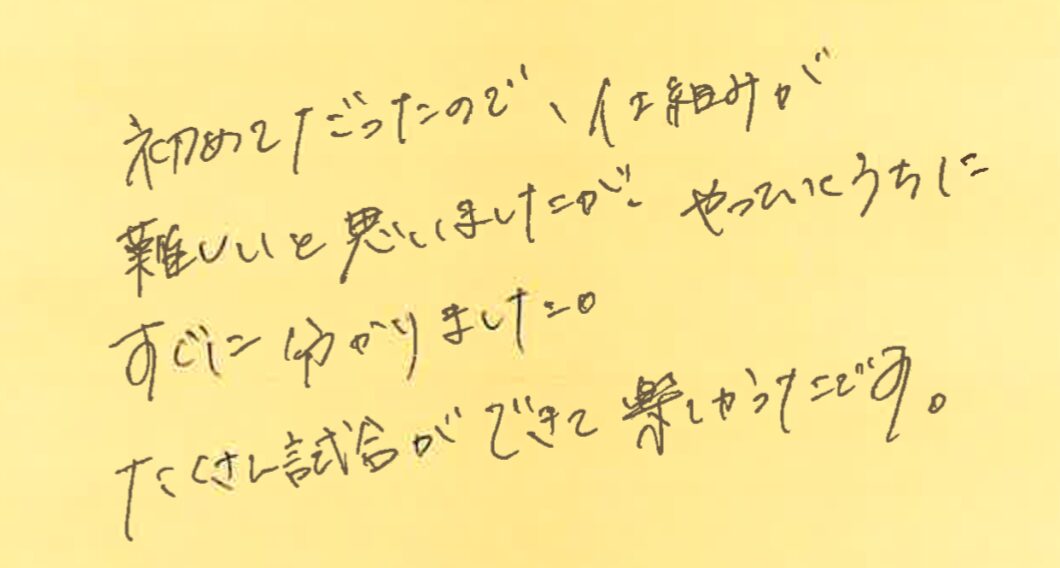 初めてだったので、仕組みが
難しいと思いましたが、やっていくうちに
すぐに分かりました。
たくさん試合ができて楽しかったです。